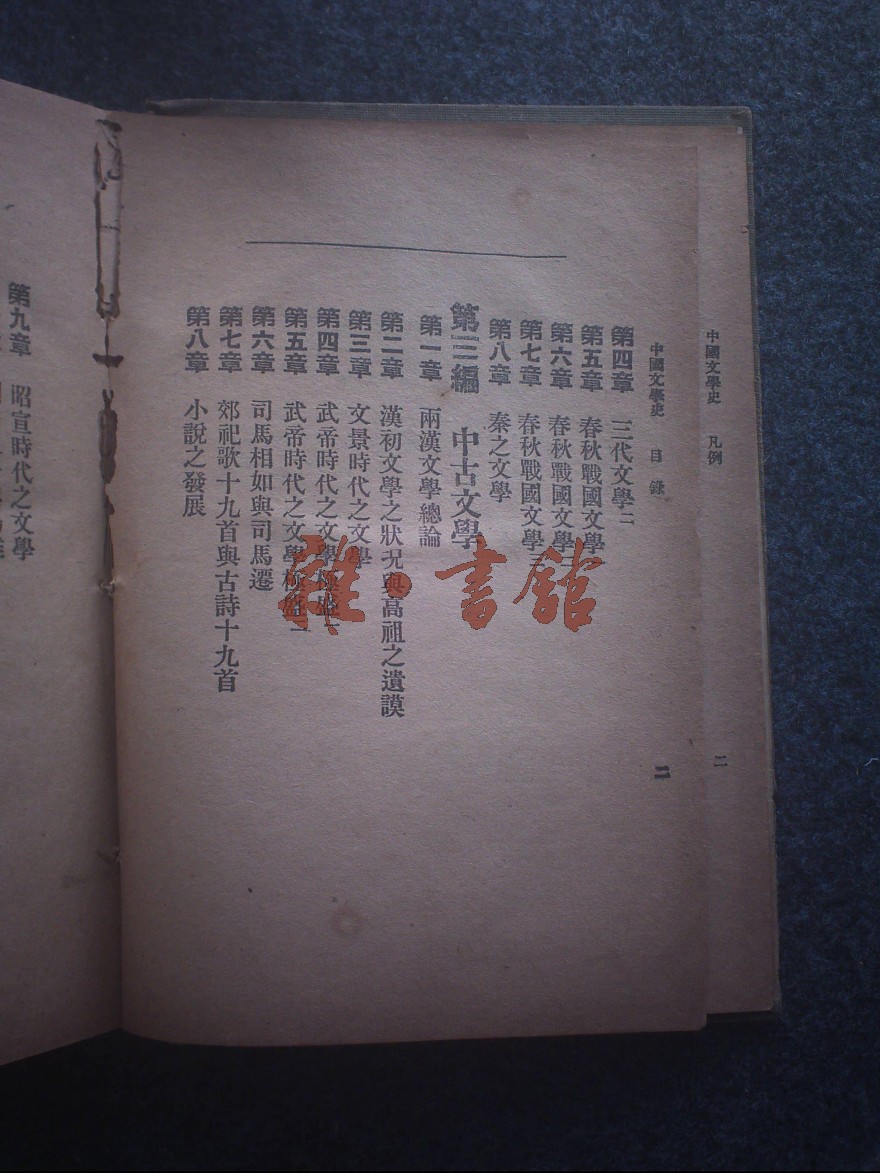 中國文學史 凡例
二
中國文學史 目錄
二
第四章 三代文學二
第五章 春秋戰國文學一
第六章 春秋戰國文學二
第七章 春秋戰國文學三
第八章 秦之文學
第三編 中古文學
第一章 兩漢文學總論
第二章 漢初文學之狀況與高祖之遺謨
第三章 文景時代之文學
第四章 武帝時代之文學極盛一
第五章 武帝時代之文學極盛二
第六章 司馬相如與司馬遷
第七章 郊祀歌十九首與古詩十九首
第八章 小說之發展
第九章 昭宣時代之文學
雜·書館